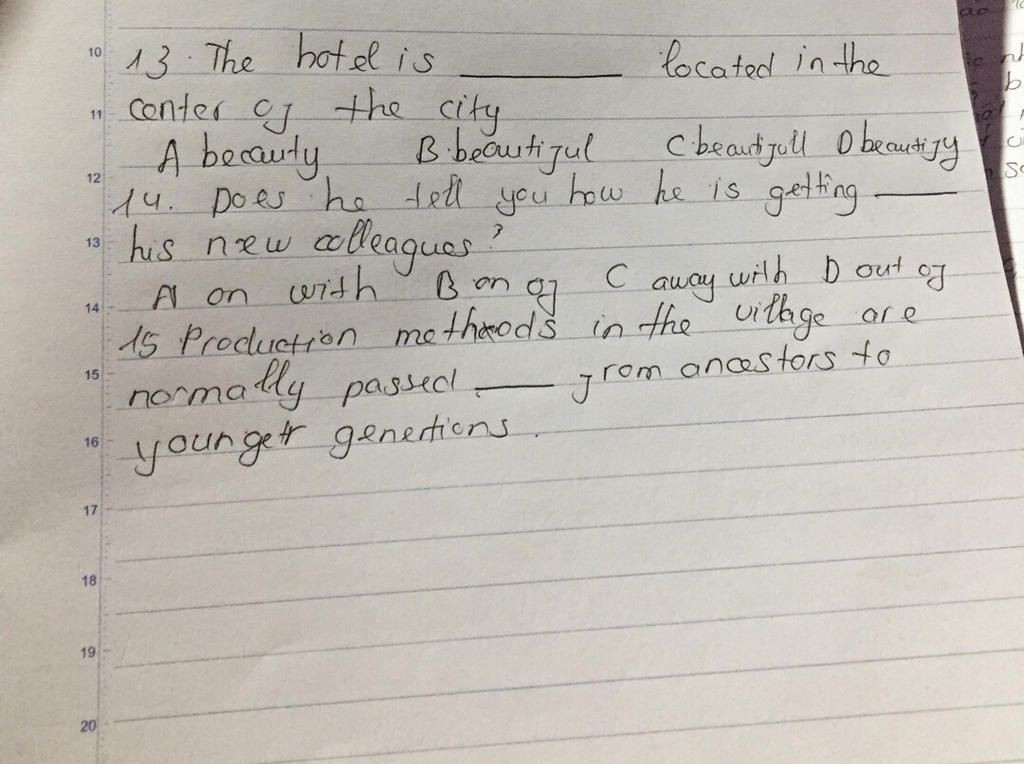 10 13. The hotel is ______ located in the
11 center of the city
A beauty B. beautiful C beautifull D beautify
12 14. Does he tell you how he is getting ____
13 his new colleagues?
A on with B on of C away with D out of
14 15 Production methods in the village are
15 normally passed ____ from ancestors to
16 younger genertions.
17
18
19
20